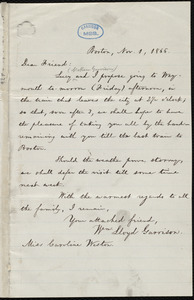 Boston, Nov. 1, 1866.
Dear Friend
Lucy and I propose going to Wey-
mouth to-morrow (Friday) afternoon, in
the train that leaves the city at
so that, soon after, we shall hope to have
the pleasure of taking you all by the hand—
remaining with you till the last train to
Boston.
Should the weather prove stormy,
we shall defer the visit till some time
next week.
With the warmest regards to all
the family, I remain,
Your attached friend,
Wm. Lloyd Garrison.
Miss Caroline Weston.